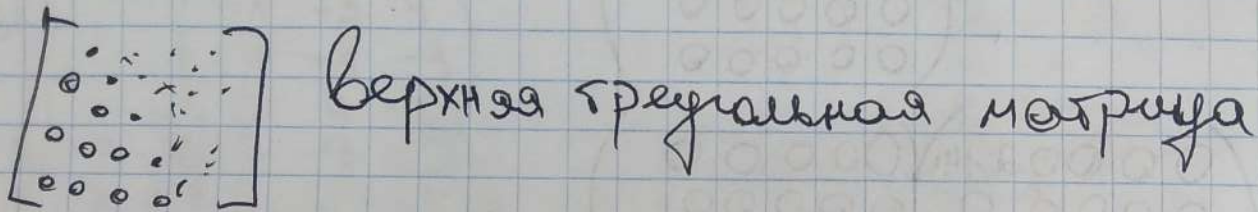 верхняя треугольная матрица